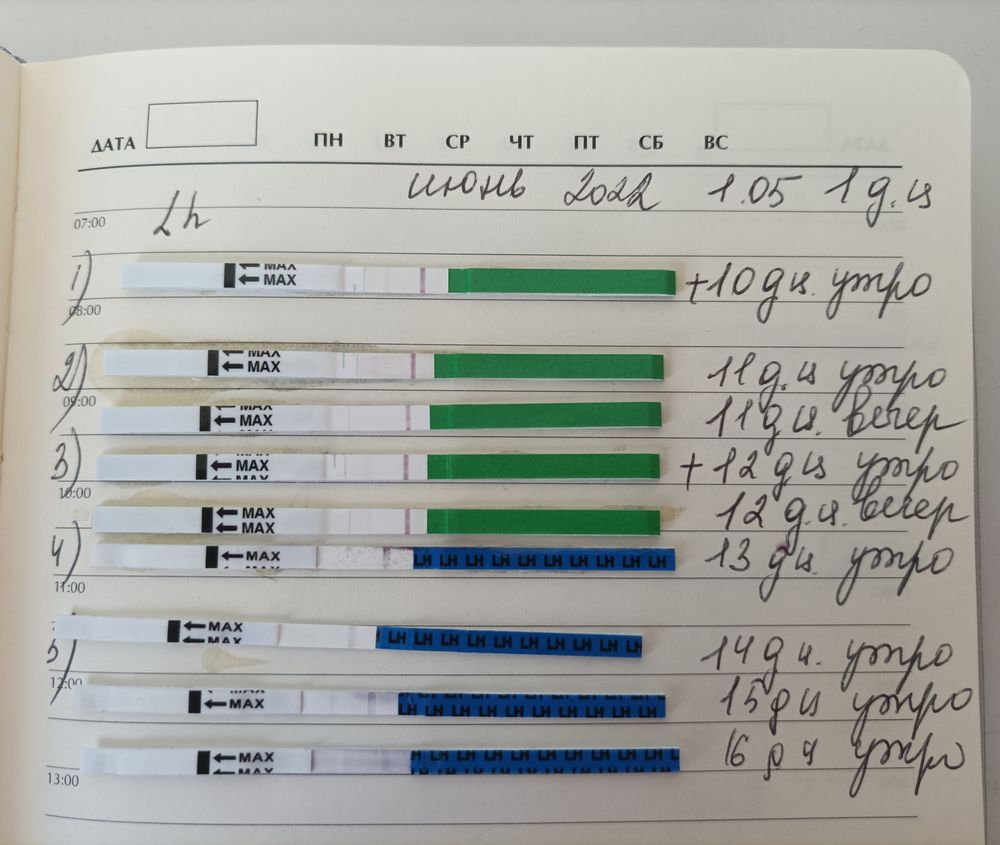 ДАТА ПН ВТ СР ЧТ ПТ СБ ВС
июнь 2022 1.05 1 д.ц
07:00 Lh
1) MAX MAX +10 дц. утро
08:00
2) MAX MAX 11 д.ц утро
09:00
MAX MAX 11 дц. вечер
3) MAX MAX + 12 дц утро
10:00
MAX MAX 12 д.ц. вечер
4) MAX LH LH LH LH LH LH LH LH LH 13 дц. утро
11:00
5) MAX MAX LH LH LH LH LH LH LH LH LH LH 14 д ц. утро
12:00
MAX MAX LH LH LH LH LH LH LH LH LH LH 15 дц утро
16 д ц утро
MAX MAX LH LH LH LH LH LH LH LH LH LH
13:00